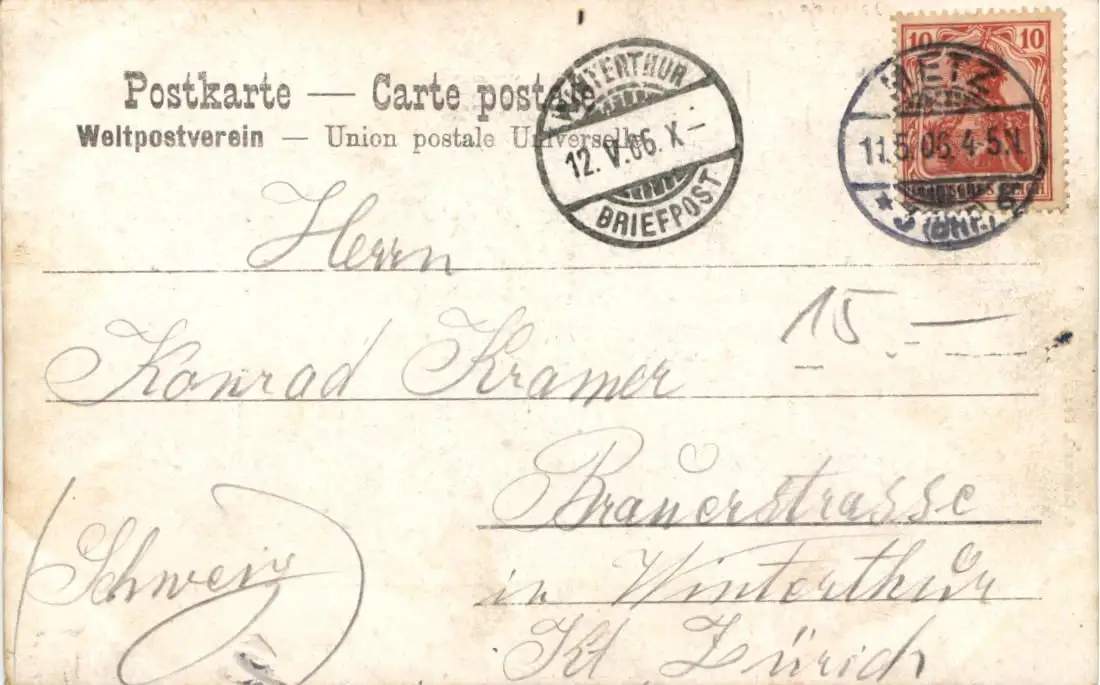 Postkarte — Carte postale
Weltpostverein — Union postale Universelle
WINTERTHUR
12. V. 06. X –
BRIEFPOST
10 10
DEUTSCHES REICH
METZ
11.5.06. 4-5.V.
* 5 (Bhf.)
Herrn
15. —
Konrad Kramer
Brauerstrasse
(Schweiz)
in Winterthur
Kt Zürich